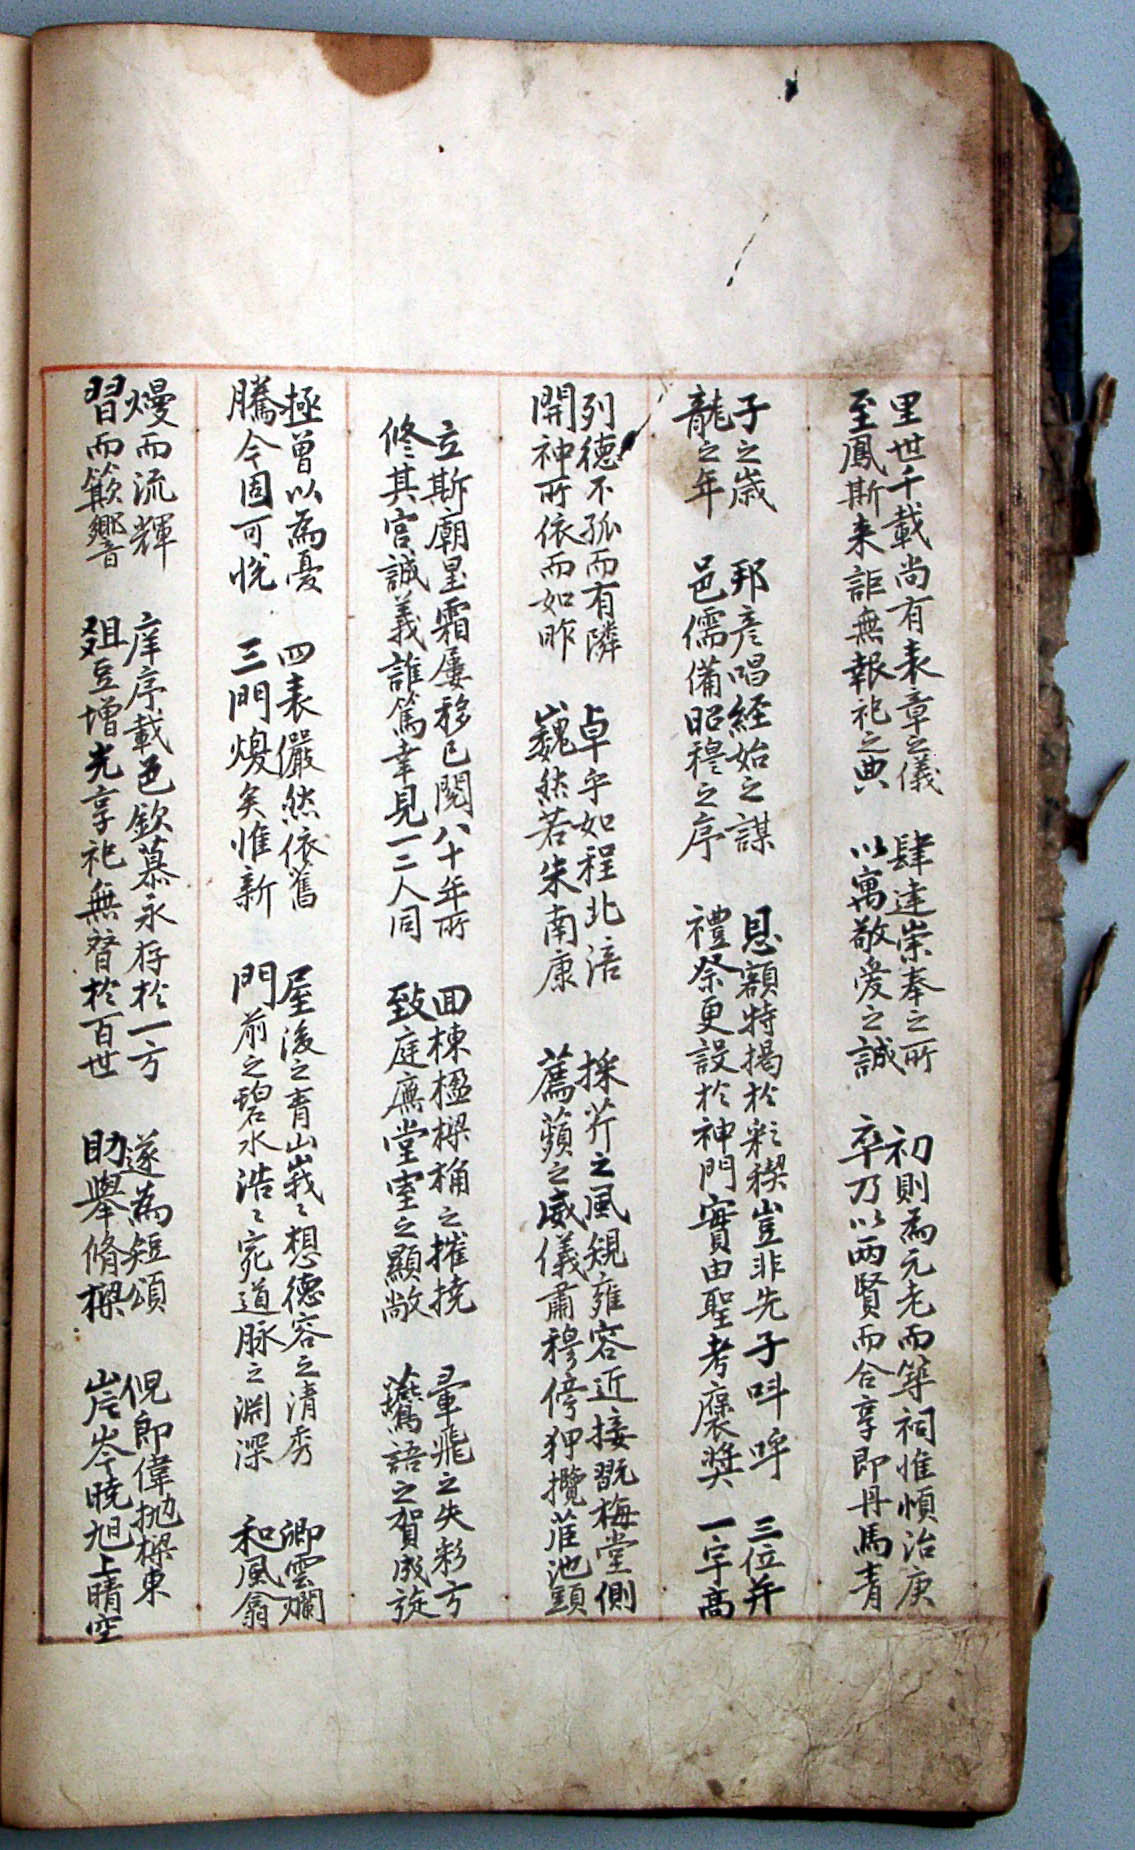 里世千載尚有表章之儀 肆達崇奉之所 初則爲元老而等祠惟愼治庚
至鳳斯来詎無報祀之典 以寓敬愛之誠 卒乃以兩賢而合享即丹馬青
子之歲 邦彦唱経始之謀 恩額特揭於彩稧豈非先子呌呼 三位并
龍之年 邑儒備昭穆之序 禮祭更設於神門實由聖考褒奬 一宇高
列德不孤而有隣 卓乎如程北涪 採芹之風䂓雍容近接翫梅堂側
開神所依而如昨 巍然若朱南康 薦蘋之威儀肅穆傍狎攬
立斯廟星霜屢移已閱八十年所 回棟楹樑桷之摧撓 翬飛之失彩方
修其宮誠義誰篤幸見一二人同 致庭廡堂室之顯敞 鷰語之賀成旋
極曾以為憂 四表儼然依舊 屋後之青山峩〻想德容之清秀 卿雲爛
騰今固可悅 三門煥矣惟新 門前之碧水浩〻宛道脉之淵深 和風翕
熳而流輝 庠序載色欽慕永存於一方 遂為短頌 倪郎偉抛樑東
習而簸響 爼豆增光享祀無替於百世 助擧脩樑 岸岑曉旭上晴空